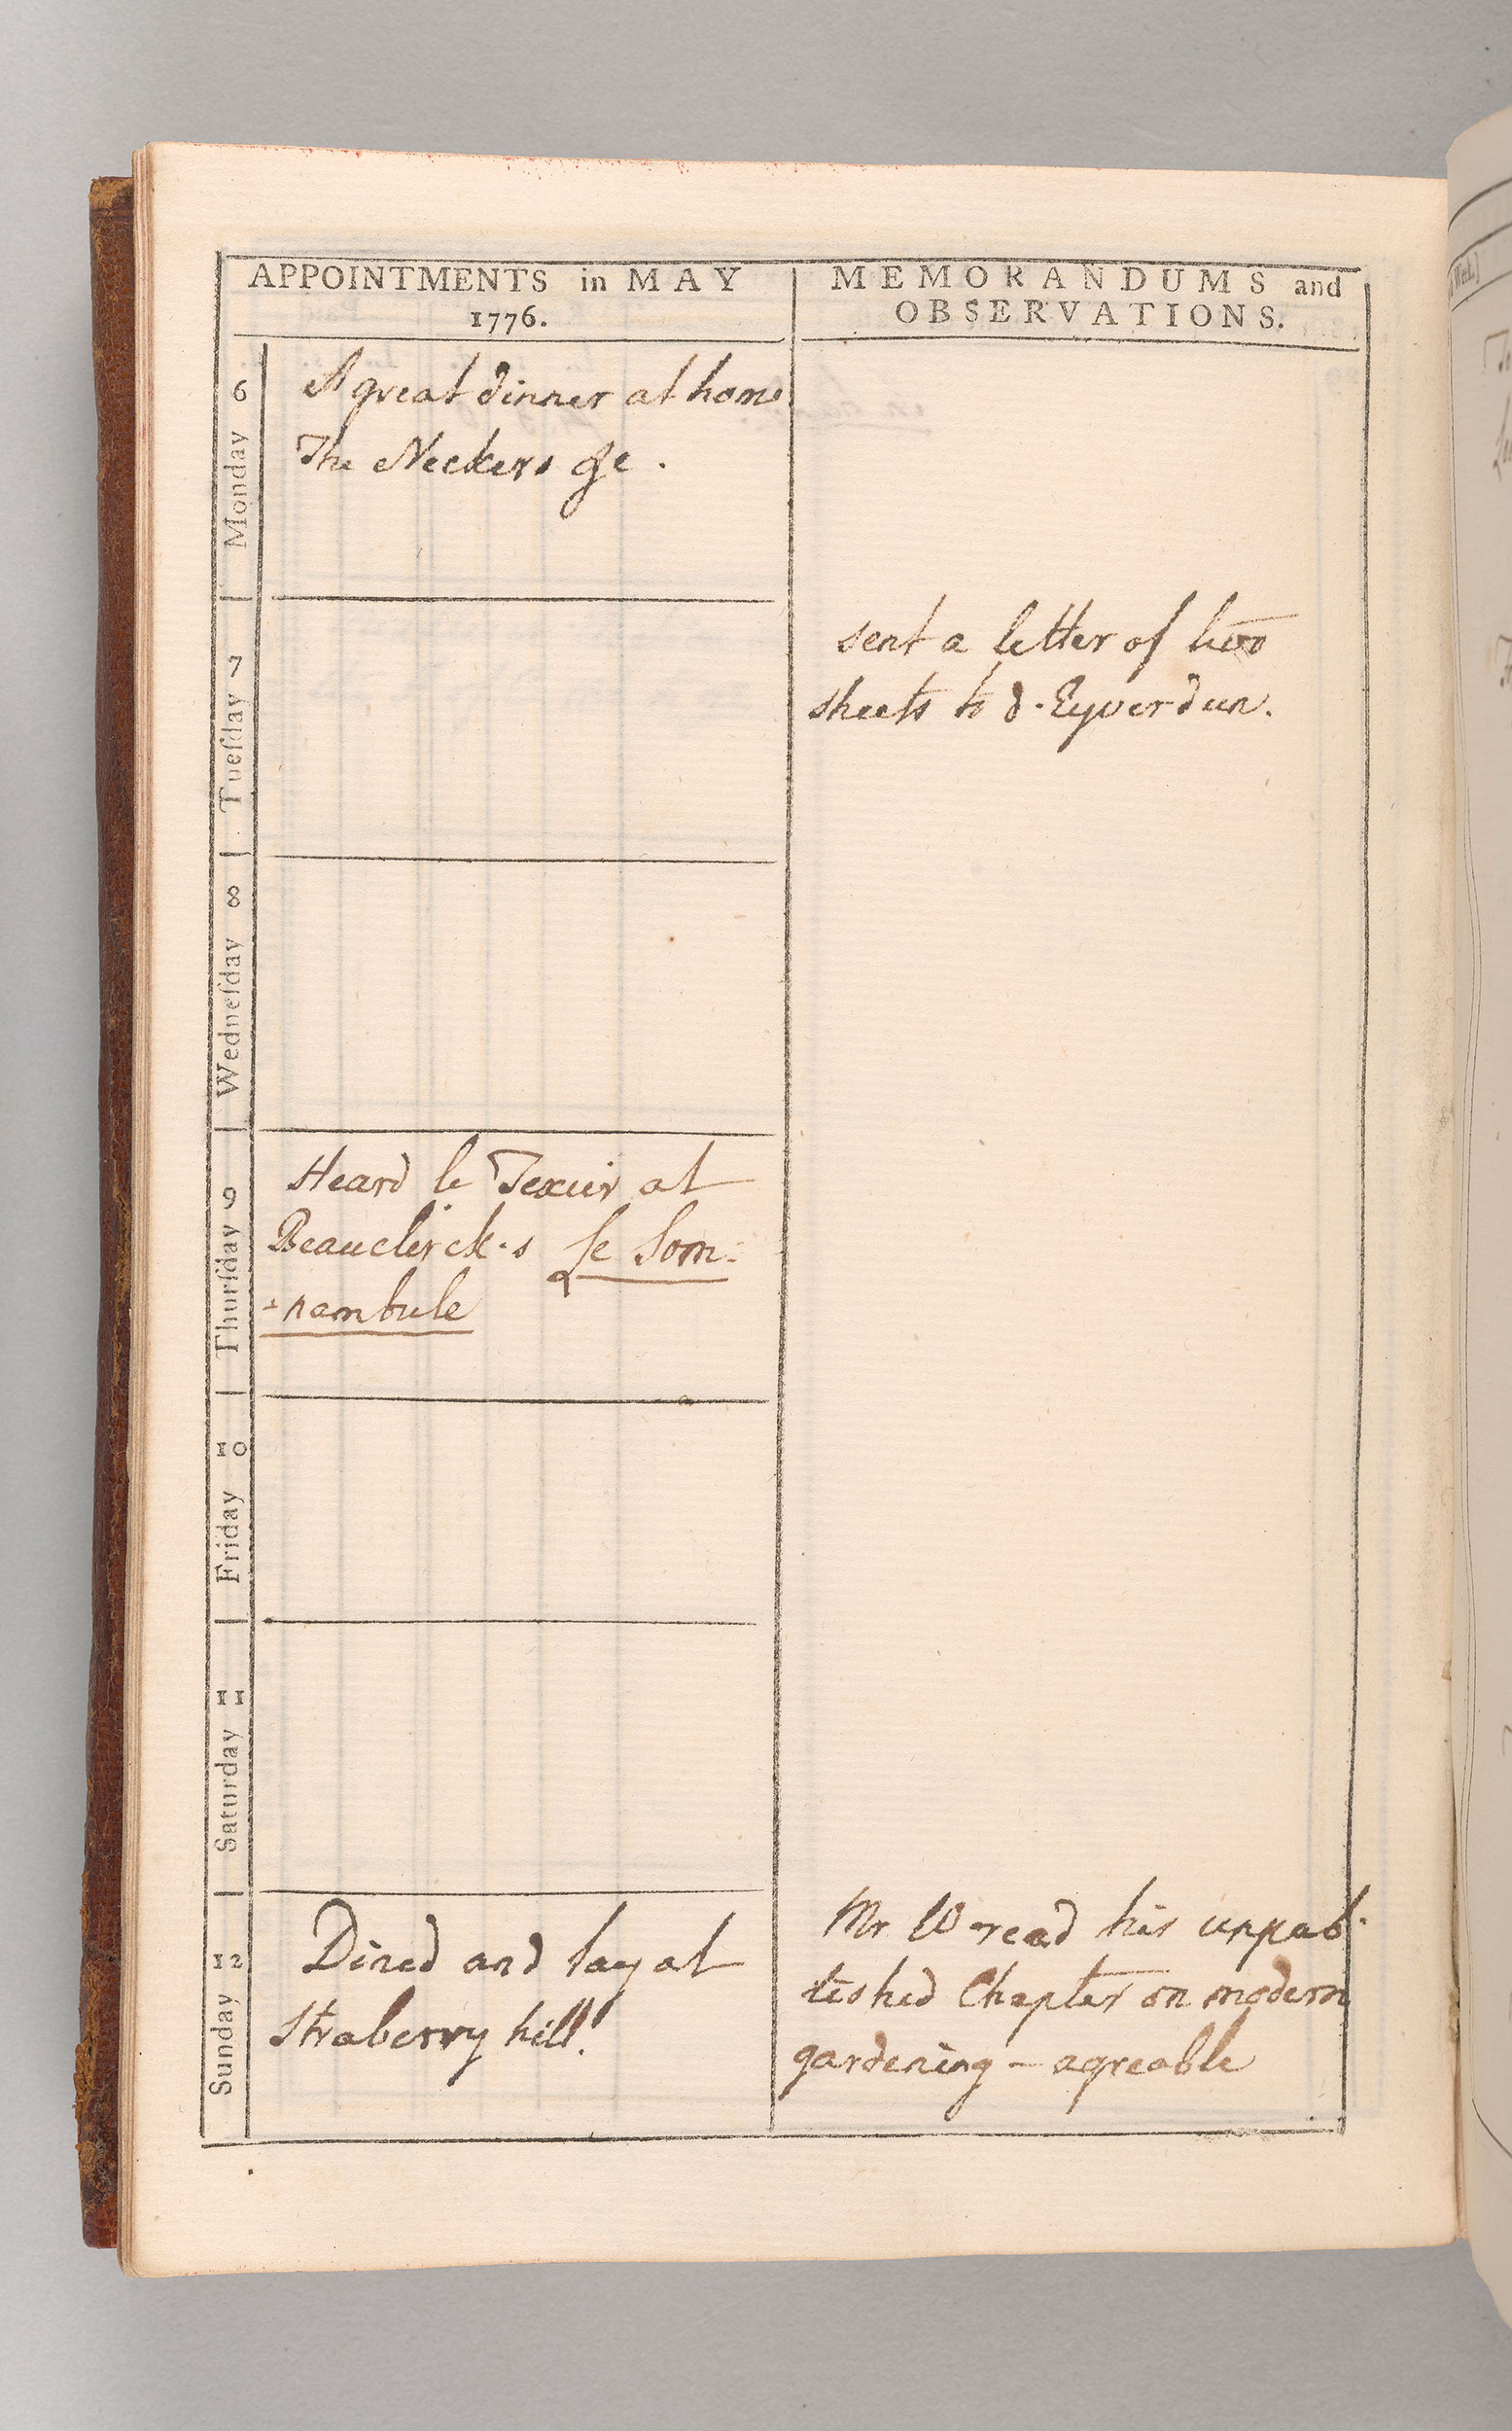 APPOINTMENTS in MAY
1776.
MEMORANDUMS and
OBSERVATIONS.
Monday 6
A great dinner at home
The Neckers &c.
Tueſday 7
sent a letter of two
sheets to d'Eyverdun.
Wedneſday 8
Thurſday 9
Heard le Texier at
Beauclerck's Le Som-
-nambule
Friday 10
Saturday 11
Sunday 12
Dined and lay at
Straberry hill!
Mr W read his unpub-
lished Chapter on modern
gardening - agreable